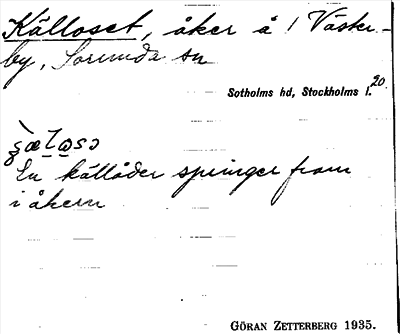 Källoset, åker å 1 Väster-
by, Sorunda sn
20.
Sotholms hd, Stockholms l.
En källåder springer fram
i åkern
GÖRAN ZETTERBERG 1935.